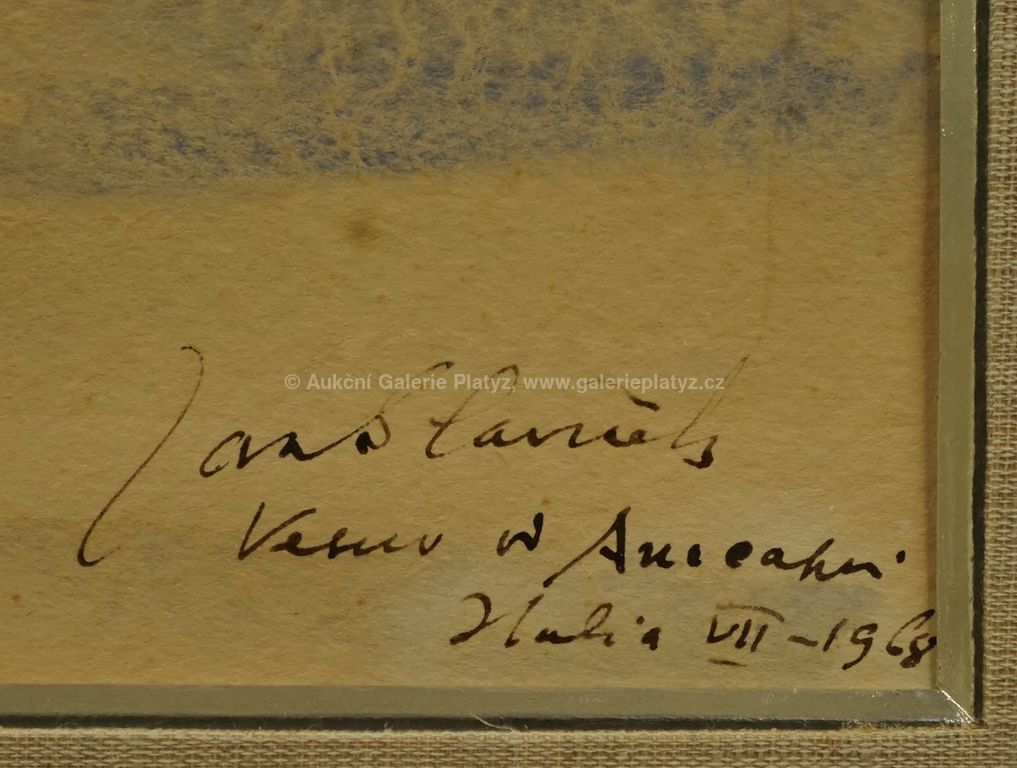 © Aukční Galerie Platyz, www.galerieplatyz.cz
Jan Slavíček
Vesuv od Anacapri
Italia VII - 1968